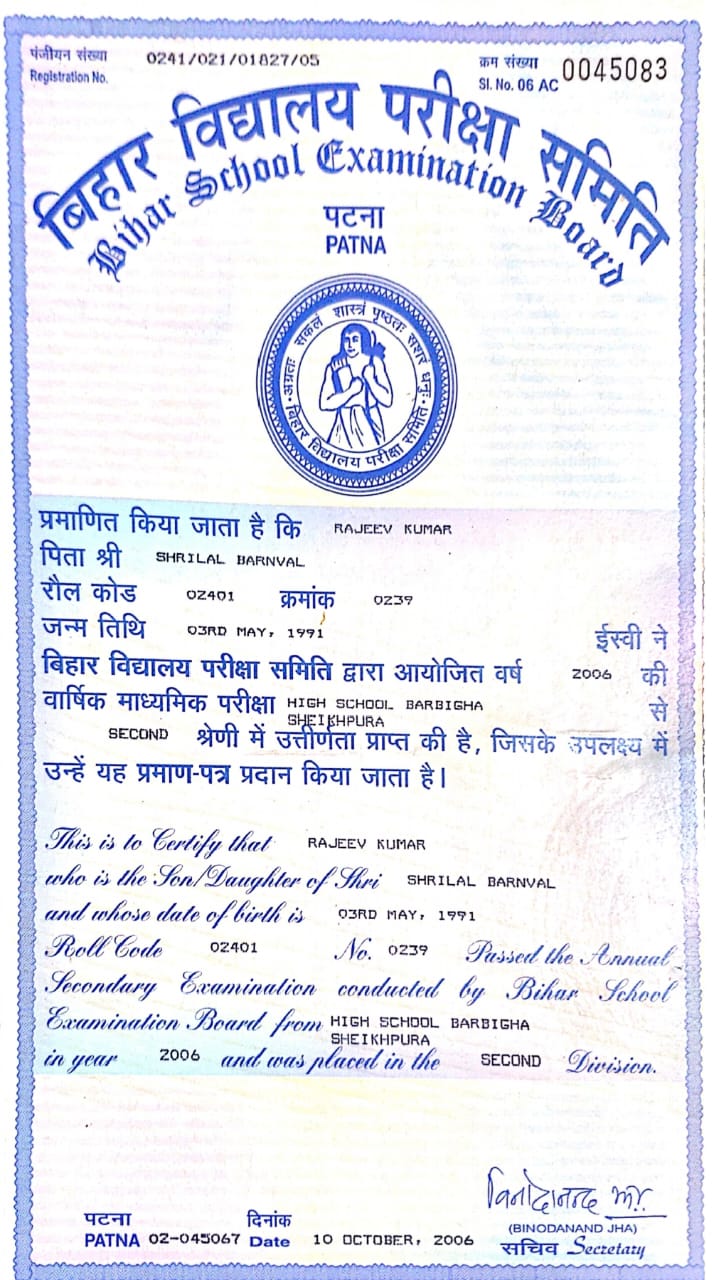 पंजीयन संख्या 0241/021/01827/05 क्रम संख्या 0045083
Registration No. Sl. No. 06 AC
बिहार विद्यालय परीक्षा समिति
Bihar School Examination Board
पटना
PATNA
अग्रतः सकलं शास्त्रं पृष्ठतः सशरं धनुः
बिहार विद्यालय परीक्षा समिति
प्रमाणित किया जाता है कि RAJEEV KUMAR
पिता श्री SHRILAL BARNVAL
रौल कोड 02401 क्रमांक 0239
जन्म तिथि 03RD MAY, 1991 ईस्वी ने
बिहार विद्यालय परीक्षा समिति द्वारा आयोजित वर्ष 2006 की
वार्षिक माध्यमिक परीक्षा HIGH SCHOOL BARBIGHA से
SHEIKHPURA
SECOND श्रेणी में उत्तीर्णता प्राप्त की है, जिसके उपलक्ष्य में
उन्हें यह प्रमाण-पत्र प्रदान किया जाता है।
This is to Certify that RAJEEV KUMAR
who is the Son/Daughter of Shri SHRILAL BARNVAL
and whose date of birth is 03RD MAY, 1991
Roll Code 02401 No. 0239 Passed the Annual
Secondary Examination conducted by Bihar School
Examination Board from HIGH SCHOOL BARBIGHA
SHEIKHPURA
in year 2006 and was placed in the SECOND Division.
विनोदानन्द झा
(BINODANAND JHA)
पटना दिनांक
PATNA 02-045067 Date 10 OCTOBER, 2006 सचिव Secretary